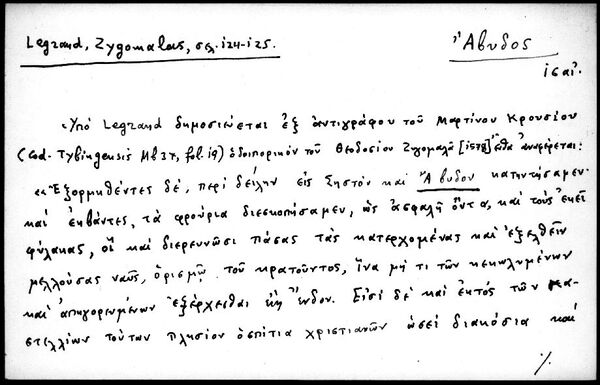 Legrand, Zygomalas, σελ. 124-125.
Ἄβυδος
ις αἰ.
«Ὑπό Legrand δημοσιεύεται ἐξ ἀντιγράφου τοῦ Μαρτίνου Κρουσίου
(Cod. Tybingensis Mb 37, fol. 19) ὁδοιπορικόν τοῦ Θεοδοσίου Ζυγομαλᾶ [1578] ἔνθα ἀναφέρεται:
«« Ἐξορμηθέντες δέ, περί δείλην εἰς Σηστόν καί Ἄβυδον κατηντήσαμεν·
καί ἐκβάντες, τά φρούρια διεσκοπήσαμεν, ὡς ἀσφαλῆ ὄντα, καί τούς ἐκεῖ
φύλακας, οἵ καί διερευνῶσι πάσας τάς κατερχομένας καί ἐξελθεῖν
μελλούσας ναῦς, ὁρισμῷ τοῦ κρατοῦντος, ἵνα μή τι τῶν κεκωλυμένων
καί ἀπηγορευμένων ἐξέρχεσθαι ᾖ ἔνδον. Εἰσί δέ καί ἐκτός τῶν κα-
στελλίων τούτων πλησίον ὁσπίτια χριστιανῶν ὡσεί διακόσια καί
./.